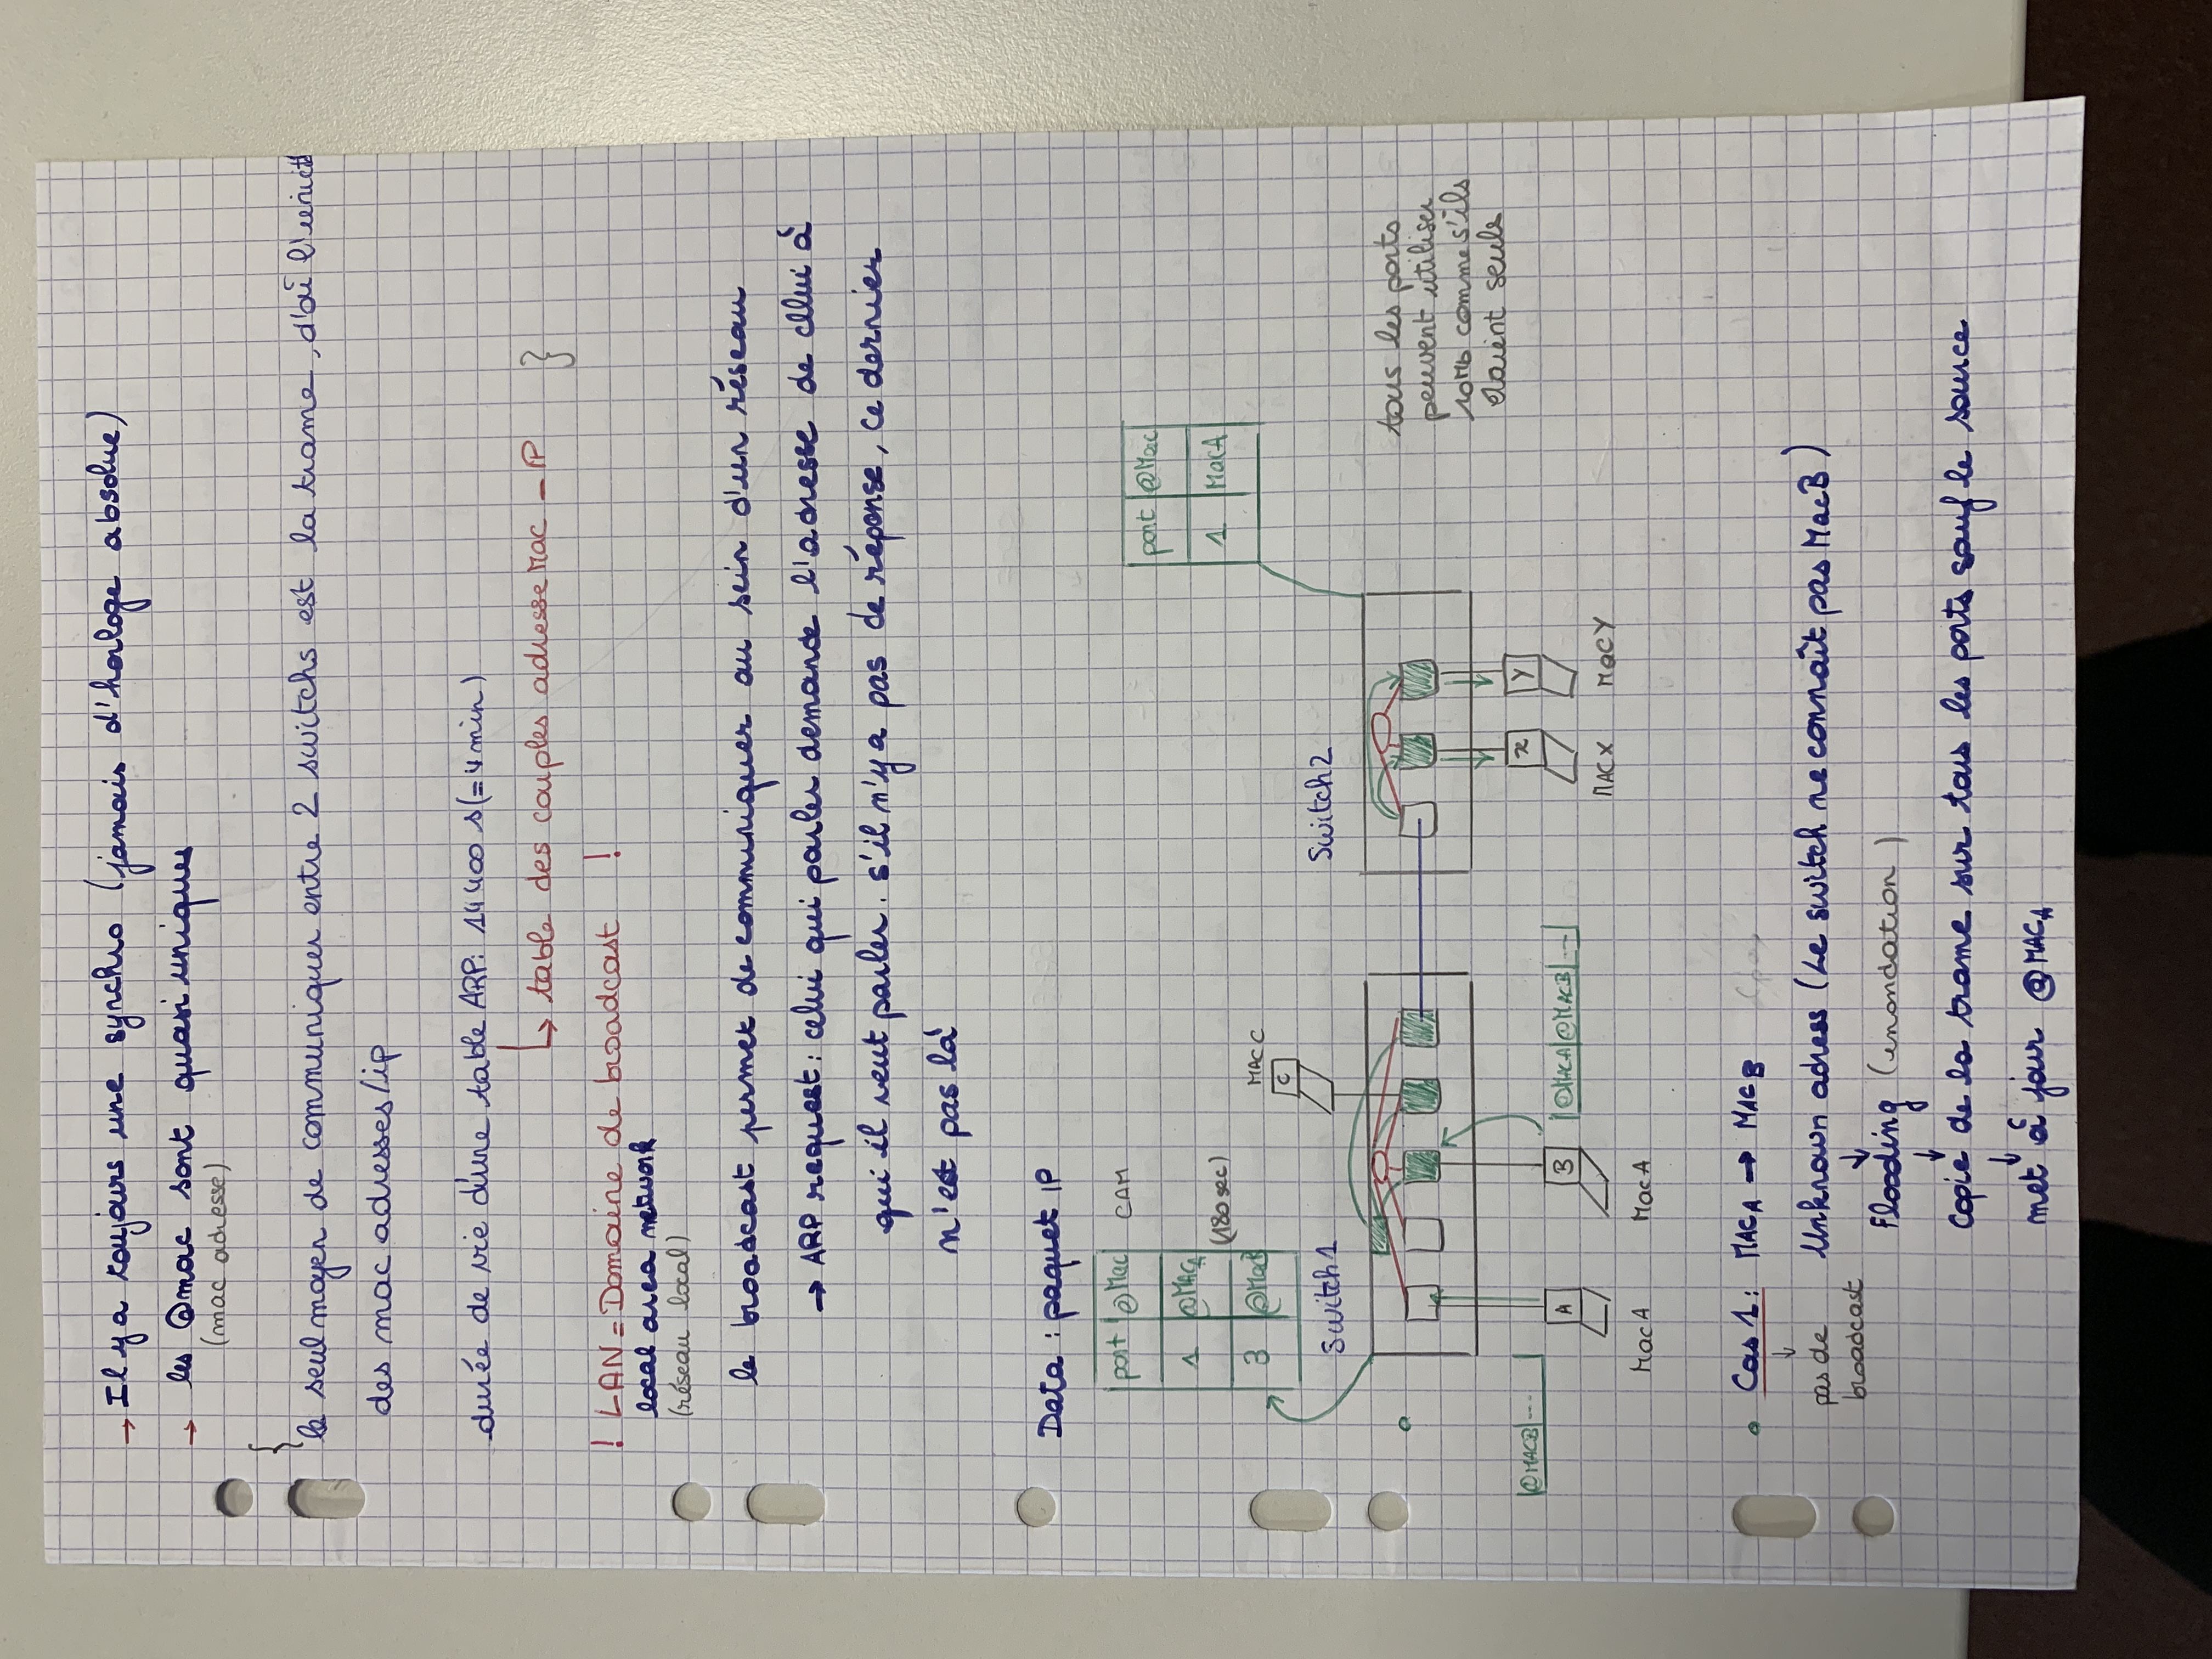 → Il y a toujours une synchro (jamais d'horloge absolue)
→ les @mac sont quasi uniques
(mac adresse)
{
le seul moyen de communiquer entre 2 switchs est la trame, d'où l'unicité
des mac adresses/ip
durée de vie d'une table ARP: 14400 s (= 4 min)
↳ table des couples adresse Mac - IP }
! LAN = Domaine de broadcast !
local area network
(réseau local)
le broadcast permet de communiquer au sein d'un réseau
→ ARP request: celui qui parler demande l'adresse de cllui à
qui il veut parler. s'il n'y a pas de réponse, ce dernier
n'est pas là
Data : paquet IP
port @Mac CAM
1 @MACA
(180 sec)
3 @MacB
port @Mac
1 MacA
MAC C
C
Switch1
Switch2
tous les ports
peuvent utiliser
10Mb comme s'ils
étaient seuls
@MACB ---
A
B
@MACA @MACB ---
x
Y
MAC X
MacY
MacA
MacA
Cas 1: MACA → MACB
↓
pas de
broadcast
Unknown adress (Le switch ne connaît pas MacB)
↓
Flooding (inondation)
↓
Copie de la trame sur tous les ports sauf le source
↓
met à jour @MACA